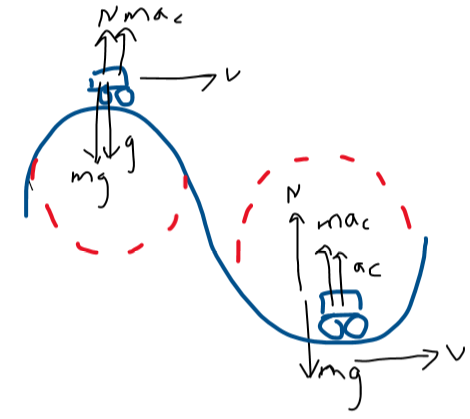 N mac
v
g
mg
N
mac
ac
v
mg